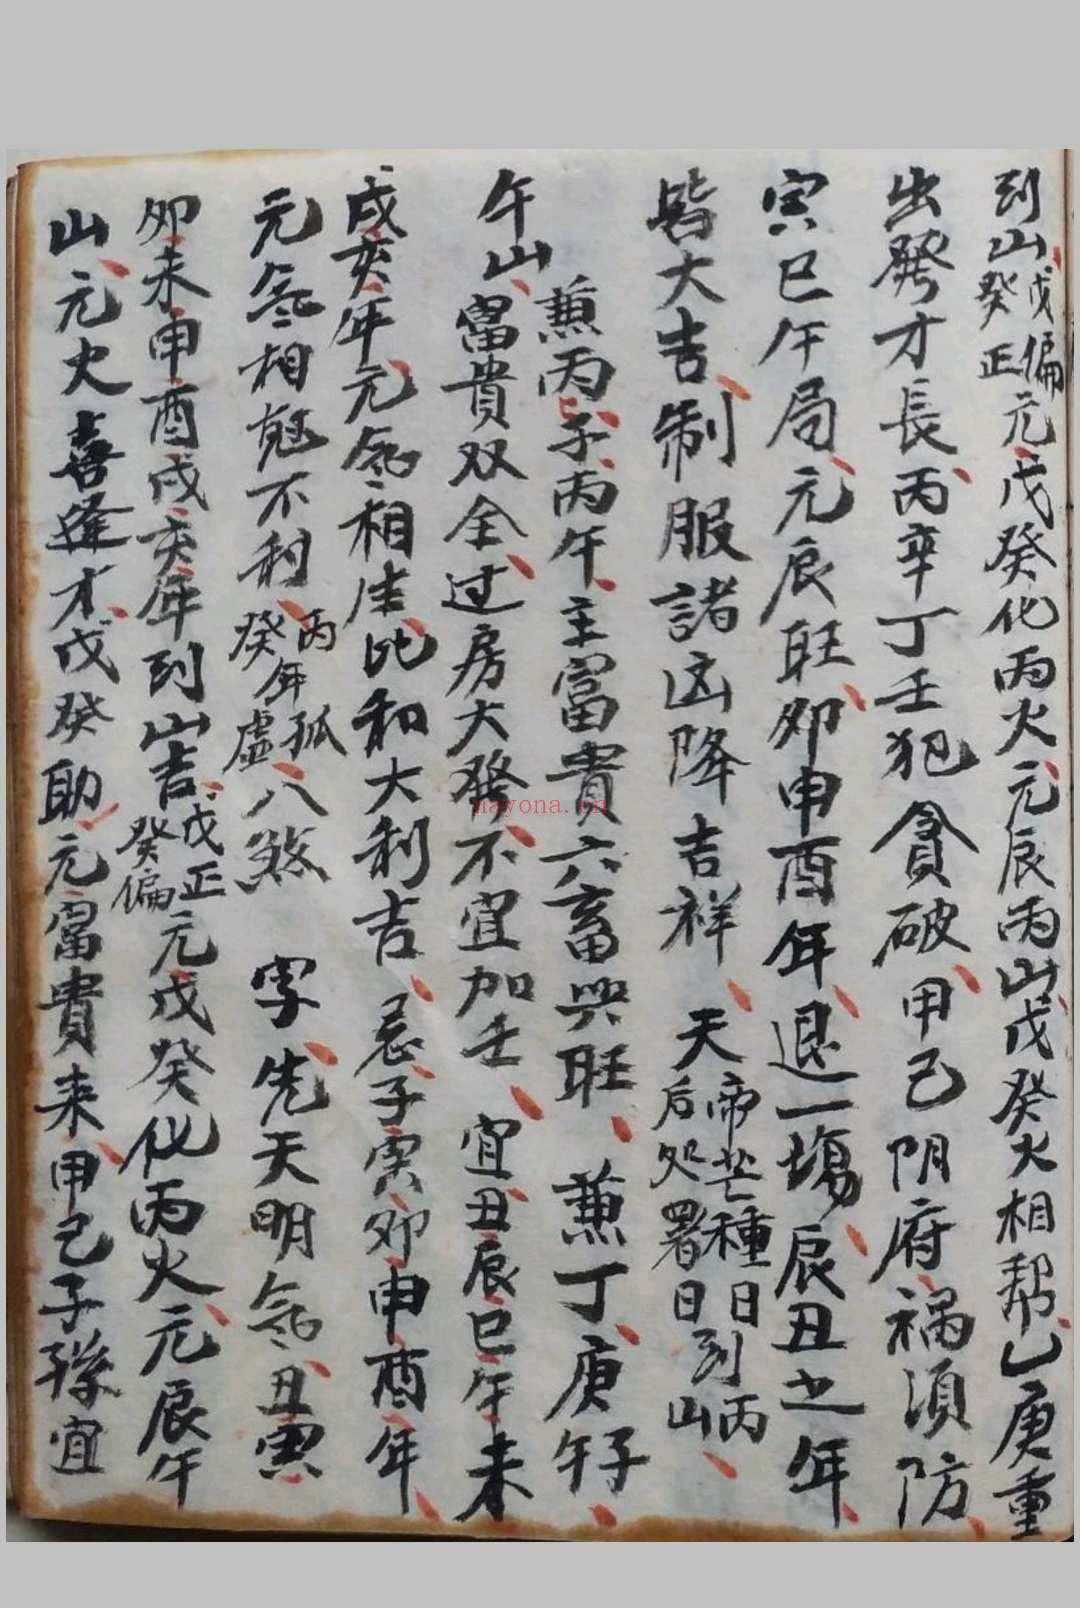 到山戊偏癸正元戊癸化丙火元辰丙山戊癸火相帮乙庚重
出發才長丙辛丁壬犯貪破甲己阴府禍須防
寅巳午局元辰旺卯申酉年退一塲辰丑之年
皆大吉制服諸凶降吉祥天帝芒種日后処署日到丙山
兼丙子丙午主富貴六畜興旺兼丁庚子午
午山富貴双全过房大發不宜加壬宜丑辰巳午未
戌亥年元氣相生比和大利吉忌子寅卯申酉年
元氣相尅不利丙年孤癸年虛八煞字先天明氣丑寅
卯未申酉戌亥年到山吉戊正癸偏元戊癸化丙火元辰午
山元火喜逢才戊癸助元富貴来甲己子孫宜
nayona.cn